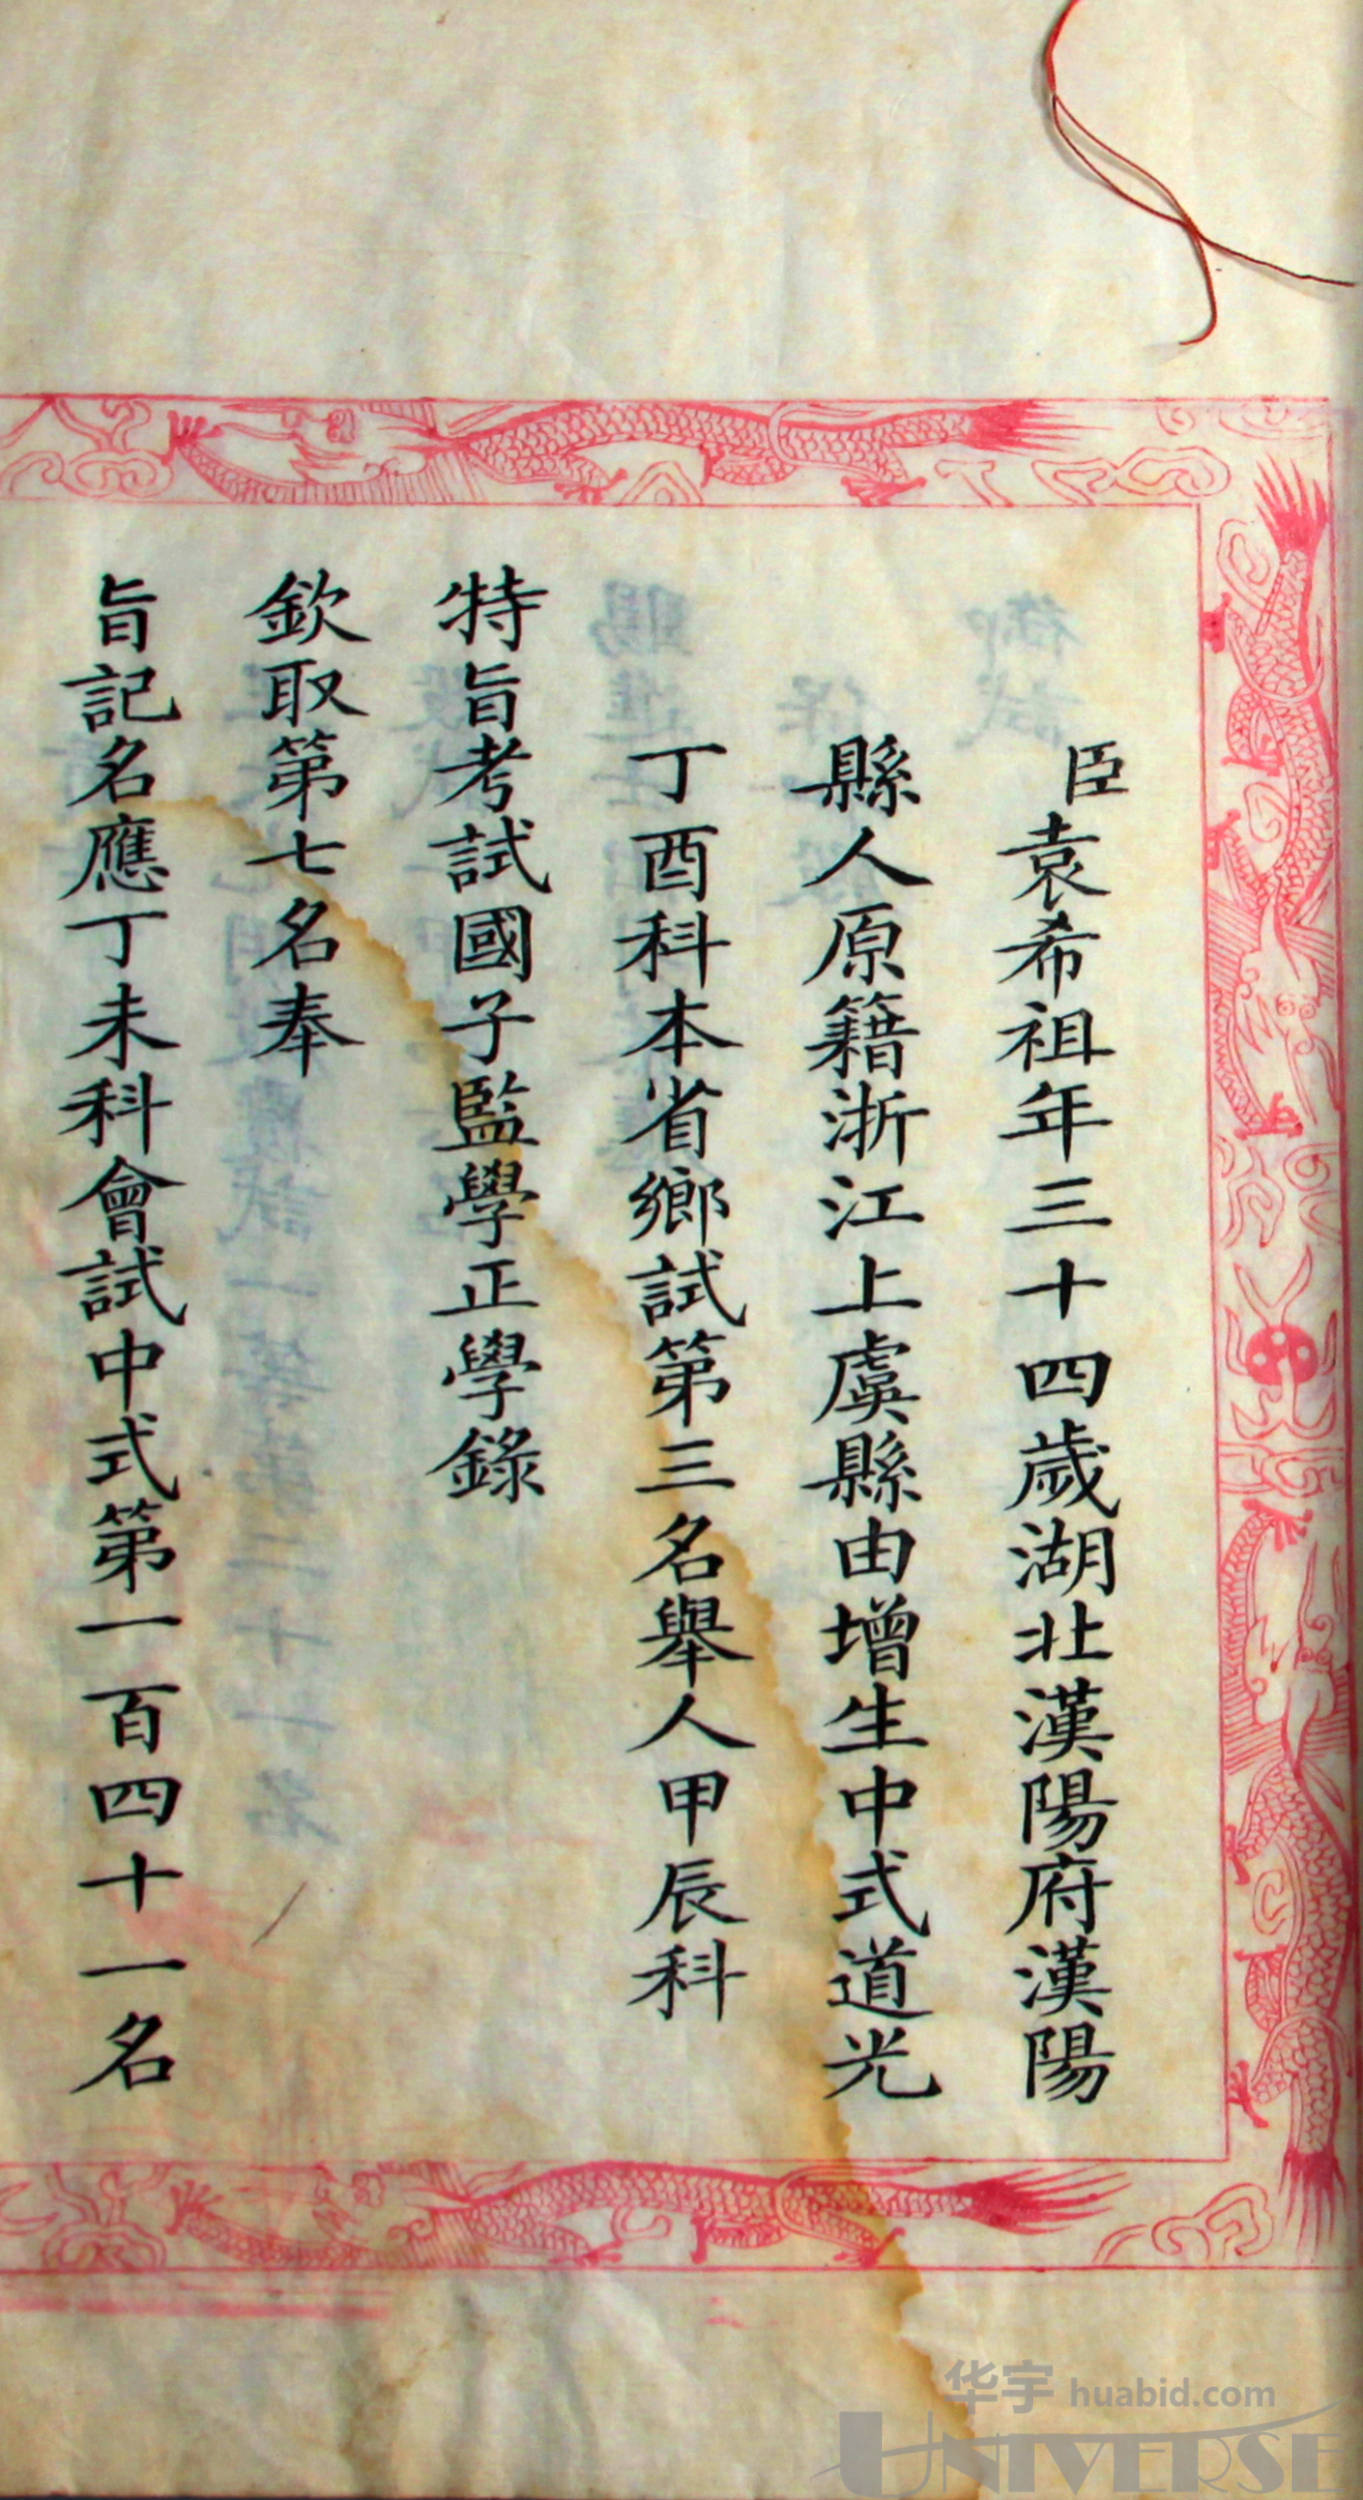 臣袁希祖年三十四歲湖北漢陽府漢陽
縣人原籍浙江上虞縣由增生中式道光
丁酉科本省鄉試第三名舉人甲辰科
特旨考試國子監學正學錄
欽取第七名奉
旨記名應丁未科會試中式第一百四十一名
华宇 huabid.com
UNIVERSE